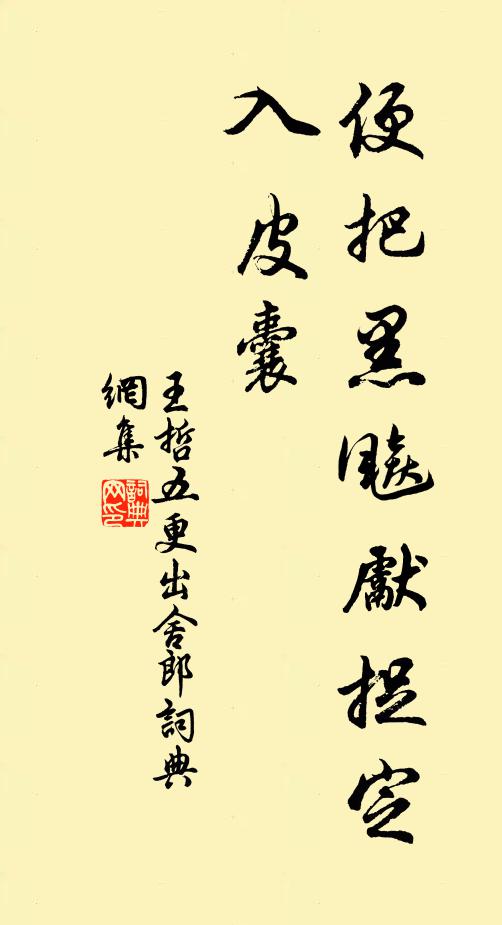 便把黑獻捉定
入皮囊
王哲五更出舍郎詞典
網集
詞典
网印